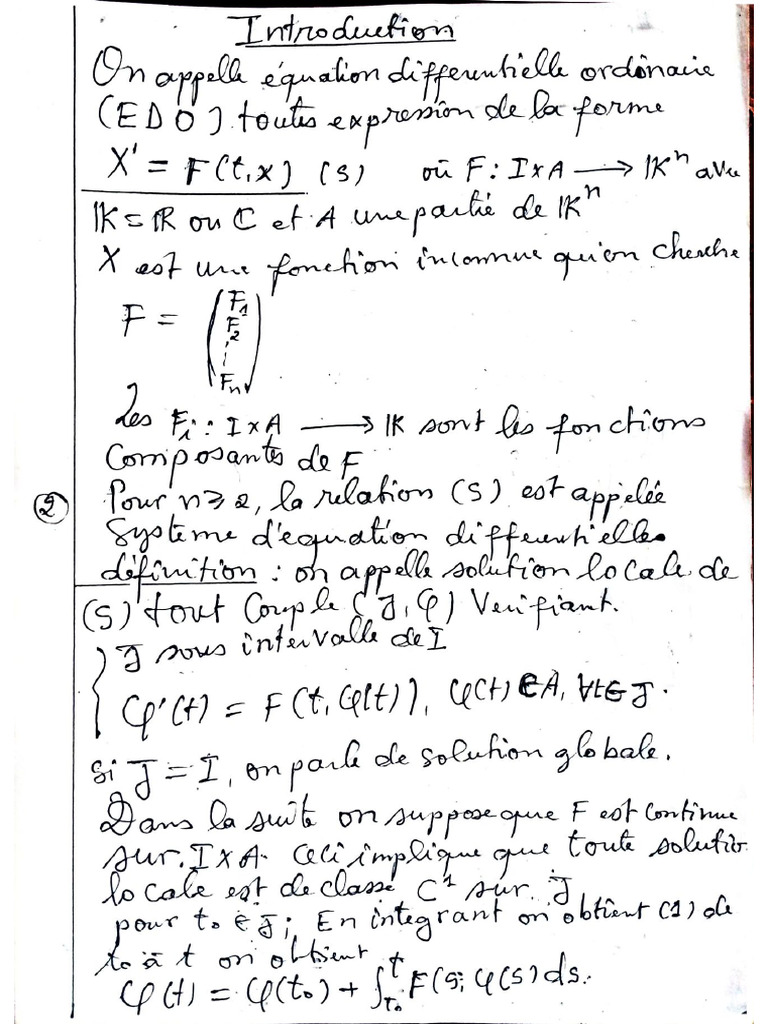 Introduction
On appelle équation differentielle ordinaire
(EDO) toutes expression de la forme
X' = F(t,x) (S) où F : I x A → IKⁿ avec
IK = IR ou ℂ et A une partie de IKⁿ
X est une fonction inconnue qu'on cherche
F = (F₁
F₂
⋮
Fₙ)
Les Fᵢ : I x A → IK sont les fonctions
Composantes de F
② Pour n ≥ 2, la relation (S) est appelée
Système d'équation differentielles
définition : on appelle solution locale de
(S) tout Couple (J, φ) Verifiant.
{ J sous intervalle de I
φ'(t) = F(t, φ(t)), φ(t) ∈ A, ∀t ∈ J.
si J = I, on parle de solution globale.
Dans la suite on suppose que F est continue
sur I x A. Ceci implique que toute solutio
locale est de classe C¹ sur J
pour t₀ ∈ J; En integrant on obtient (1) de
t₀ à t on obtient
φ(t) = φ(t₀) + ∫ₜ₀ᵗ F(s; φ(s) ds.